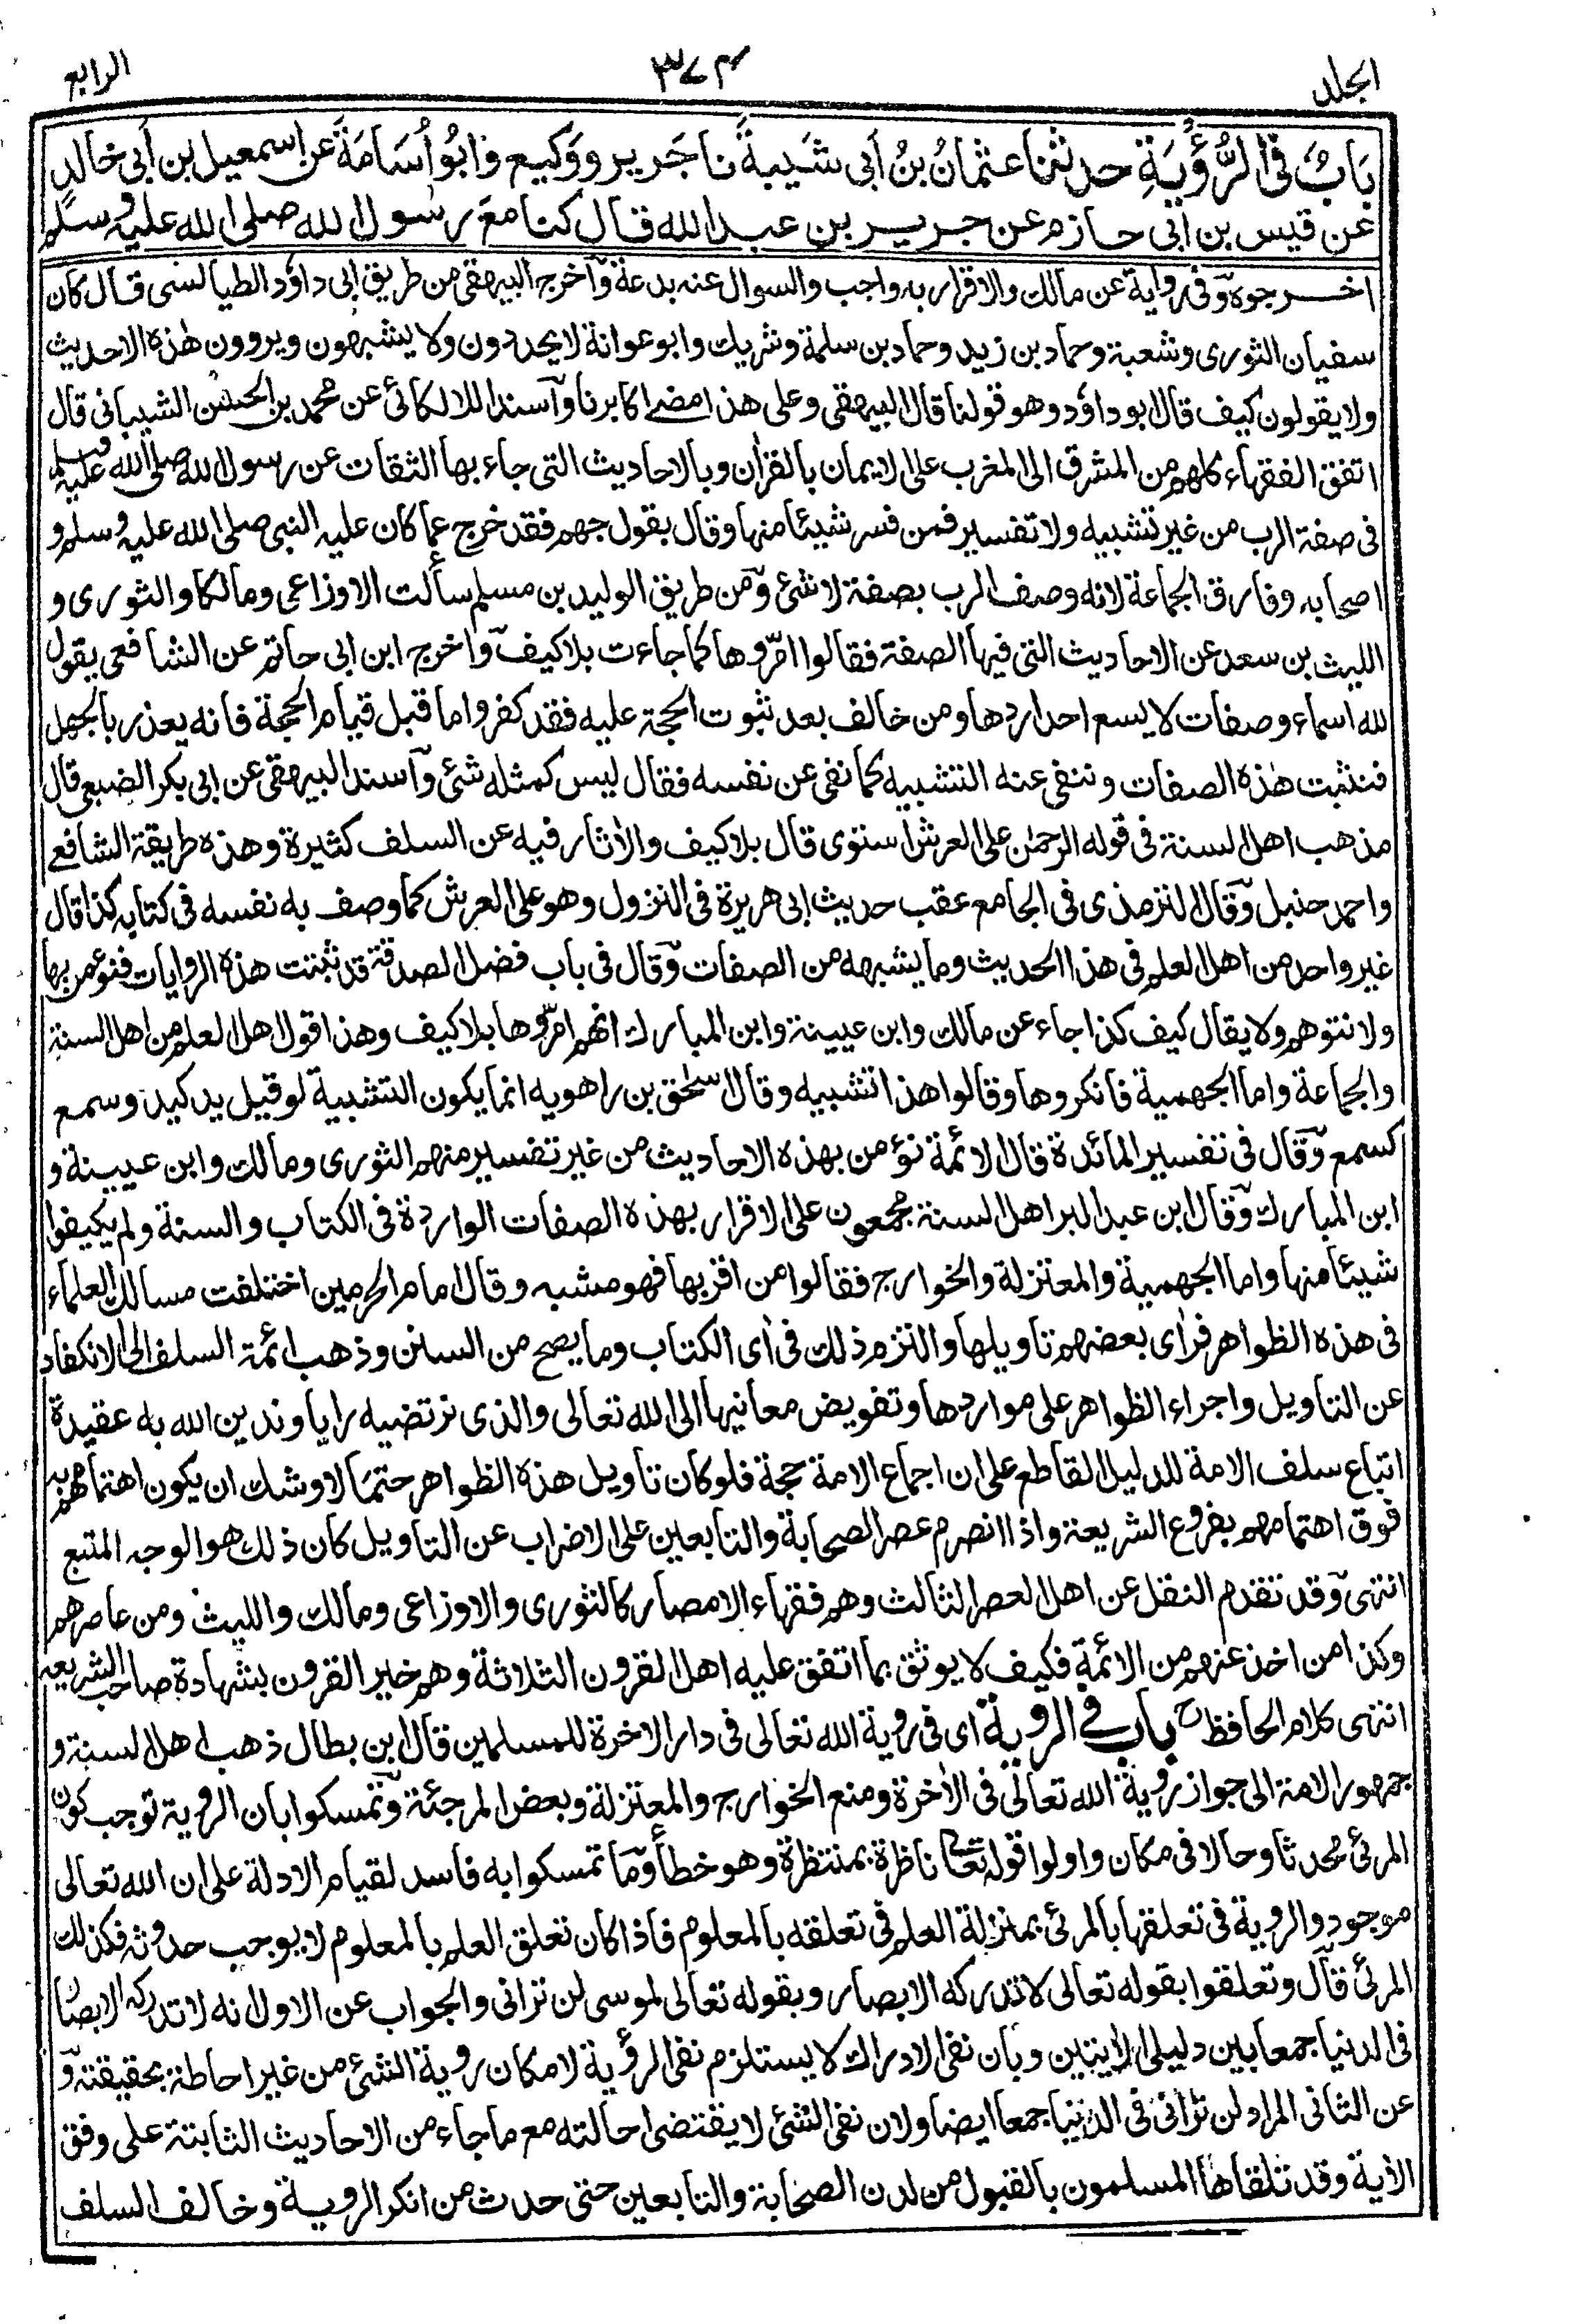 الجلد
٣٧٣
الرابع
بَابٌ فِي الرُّؤْيَةِ حدثنا عثمانُ بنُ أبي شَيبةَ نا جَرير ووَكيع وَابُو أُسَامَةَ عن اسمعيل بن أبي خالدٍ
عن قيس بن أبي حازم عن جرير بن عبدالله قال كنا مع رسول الله صلى الله عليه وسلم
اخرجوه وفي رواية عن مالك والاقرار به واجب والسوال عنه بدعة وآخرج البيهقي من طريق ابي داؤد الطيالسي قال كان
سفيان الثوري وشعبة وحماد بن زيد وحماد بن سلمة وشريك وابو عوانة لا يحددون ولا يشبهون ويروون هذه الاحاديث
ولا يقولون كيف قال ابو داؤد وهو قولنا قال البيهقي وعلى هذا مضى اكابرنا وآسند اللالكائي عن محمد بن الحسن الشيباني قال
اتفق الفقهاء كلهم من المشرق الى المغرب على الايمان بالقرآن وبالاحاديث التي جاء بها الثقات عن رسول الله صلى الله عليه وسلم
في صفة الرب من غير تشبيه ولا تفسير فمن فسر شيئا منها وقال بقول جهم فقد خرج عما كان عليه النبي صلى الله عليه وسلم و
اصحابه وفارق الجماعة لانه وصف الرب بصفة لا شئ ومن طريق الوليد بن مسلم سألت الاوزاعي ومالكا والثوري و
الليث بن سعد عن الاحاديث التي فيها الصفة فقالوا امرّوها كما جاءت بلا كيف وآخرج ابن ابي حاتم عن الشافعي يقول
لله اسماء وصفات لا يسع احدا ردها ومن خالف بعد ثبوت الحجة عليه فقد كفر واما قبل قيام الحجة فانه يعذر بالجهل
فنثبت هذه الصفات وننفي عنه التشبيه كما نفى عن نفسه فقال ليس كمثله شئ وآسند البيهقي عن ابي بكر الضبعي قال
مذهب اهل السنة في قوله الرحمن على العرش استوى قال بلا كيف والآثار فيه عن السلف كثيرة وهذه طريقة الشافعي
واحمد حنبل وقال الترمذي في الجامع عقب حديث ابي هريرة في النزول وهو على العرش كما وصف به نفسه في كتابه كذا قال
غير واحد من اهل العلم في هذا الحديث وما يشبهه من الصفات وقال في باب فضل الصدقة قد ثبتت هذه الروايات فنؤمن بها
ولا نتوهم ولا يقال كيف كذا جاء عن مالك وابن عيينة وابن المبارك انهم امرّوها بلا كيف وهذا قول اهل العلم من اهل السنة
والجماعة واما الجهمية فانكروها وقالوا هذا تشبيه وقال اسحق بن راهويه انما يكون التشبية لو قيل يد كيد وسمع
كسمع وقال في تفسير المائدة قال الائمة نؤمن بهذه الاحاديث من غير تفسير منهم الثوري ومالك وابن عيينة و
ابن المبارك وقال ابن عبد البر اهل السنة مجمعون على الاقرار بهذه الصفات الواردة في الكتاب والسنة ولم يكيفوا
شيئا منها واما الجهمية والمعتزلة والخوارج فقالوا من اقر بها فهو مشبه وقال امام الحرمين اختلفت مسالك العلماء
في هذه الظواهر فرأى بعضهم تاويلها والتزم ذلك في آى الكتاب وما يصح من السنن وذهب ائمة السلف الى الانكفاد
عن التاويل واجراء الظواهر على مواردها وتفويض معانيها الى الله تعالى والذي نرتضيه رايا وندين الله به عقيدة
اتباع سلف الامة للدليل القاطع على ان اجماع الامة حجة فلو كان تاويل هذه الظواهر حتمًا لاوشك ان يكون اهتمامهم به
فوق اهتمامهم بفروع الشريعة واذا انصرم عصر الصحابة والتابعين على الاضراب عن التاويل كان ذلك هو الوجه المتبع
انتهى وقد تقدم النقل عن اهل العصر الثالث وهم فقهاء الامصار كالثوري والاوزاعي ومالك والليث ومن عاصرهم
وكذا من اخذ عنهم من الائمة فكيف لا يوثق بما اتفق عليه اهل القرون الثلاثة وهم خير القرون بشهادة صاحب الشريعة
انتهى كلام الحافظ باب في الروية اى في روية الله تعالى في دار الاخرة للمسلمين قال ابن بطال ذهب اهل السنة و
جمهور الامة الى جواز روية الله تعالى في الآخرة ومنع الخوارج والمعتزلة وبعض المرجئة وتمسكوا بان الروية توجب كون
المرئي محدثا وحالا في مكان واولوا قوله تعالى ناظرة بمنتظرة وهو خطأ وما تمسكوا به فاسد لقيام الادلة على ان الله تعالى
موجود والروية في تعلقها بالمرئي بمنزلة العلم في تعلقه بالمعلوم فاذا كان تعلق العلم بالمعلوم لا يوجب حدوثه فكذلك
المرئي قال وتعلقوا بقوله تعالى لا تدركه الابصار وبقوله تعالى لموسى لن تراني والجواب عن الاول انه لا تدركه الابصار
في الدنيا جمعا بين دليلي الآيتين وبان نفي الادراك لا يستلزم نفي الرؤية لامكان روية الشئ من غير احاطة بحقيقته و
عن الثاني المراد لن تراني في الدنيا جمعا ايضا ولان نفي الشئ لا يقتضي احالته مع ما جاء من الاحاديث الثابتة على وفق
الآية وقد تلقاها المسلمون بالقبول من لدن الصحابة والتابعين حتى حدث من انكر الروية وخالف السلف